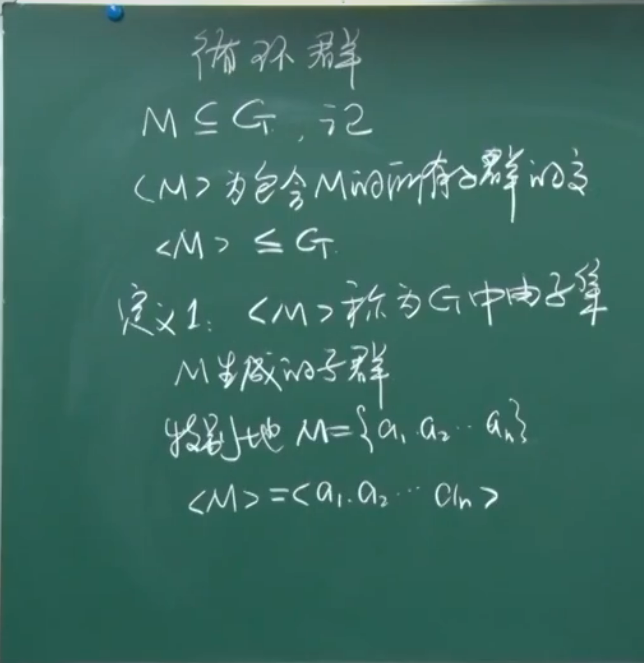 循环群
M ⊆ G, 记
<M>为包含M的所有子群的交
<M> ≤ G.
定义1: <M>称为G中由子集
M生成的子群
特别地 M={a₁.a₂…aₙ}
<M>=<a₁.a₂…aₙ>